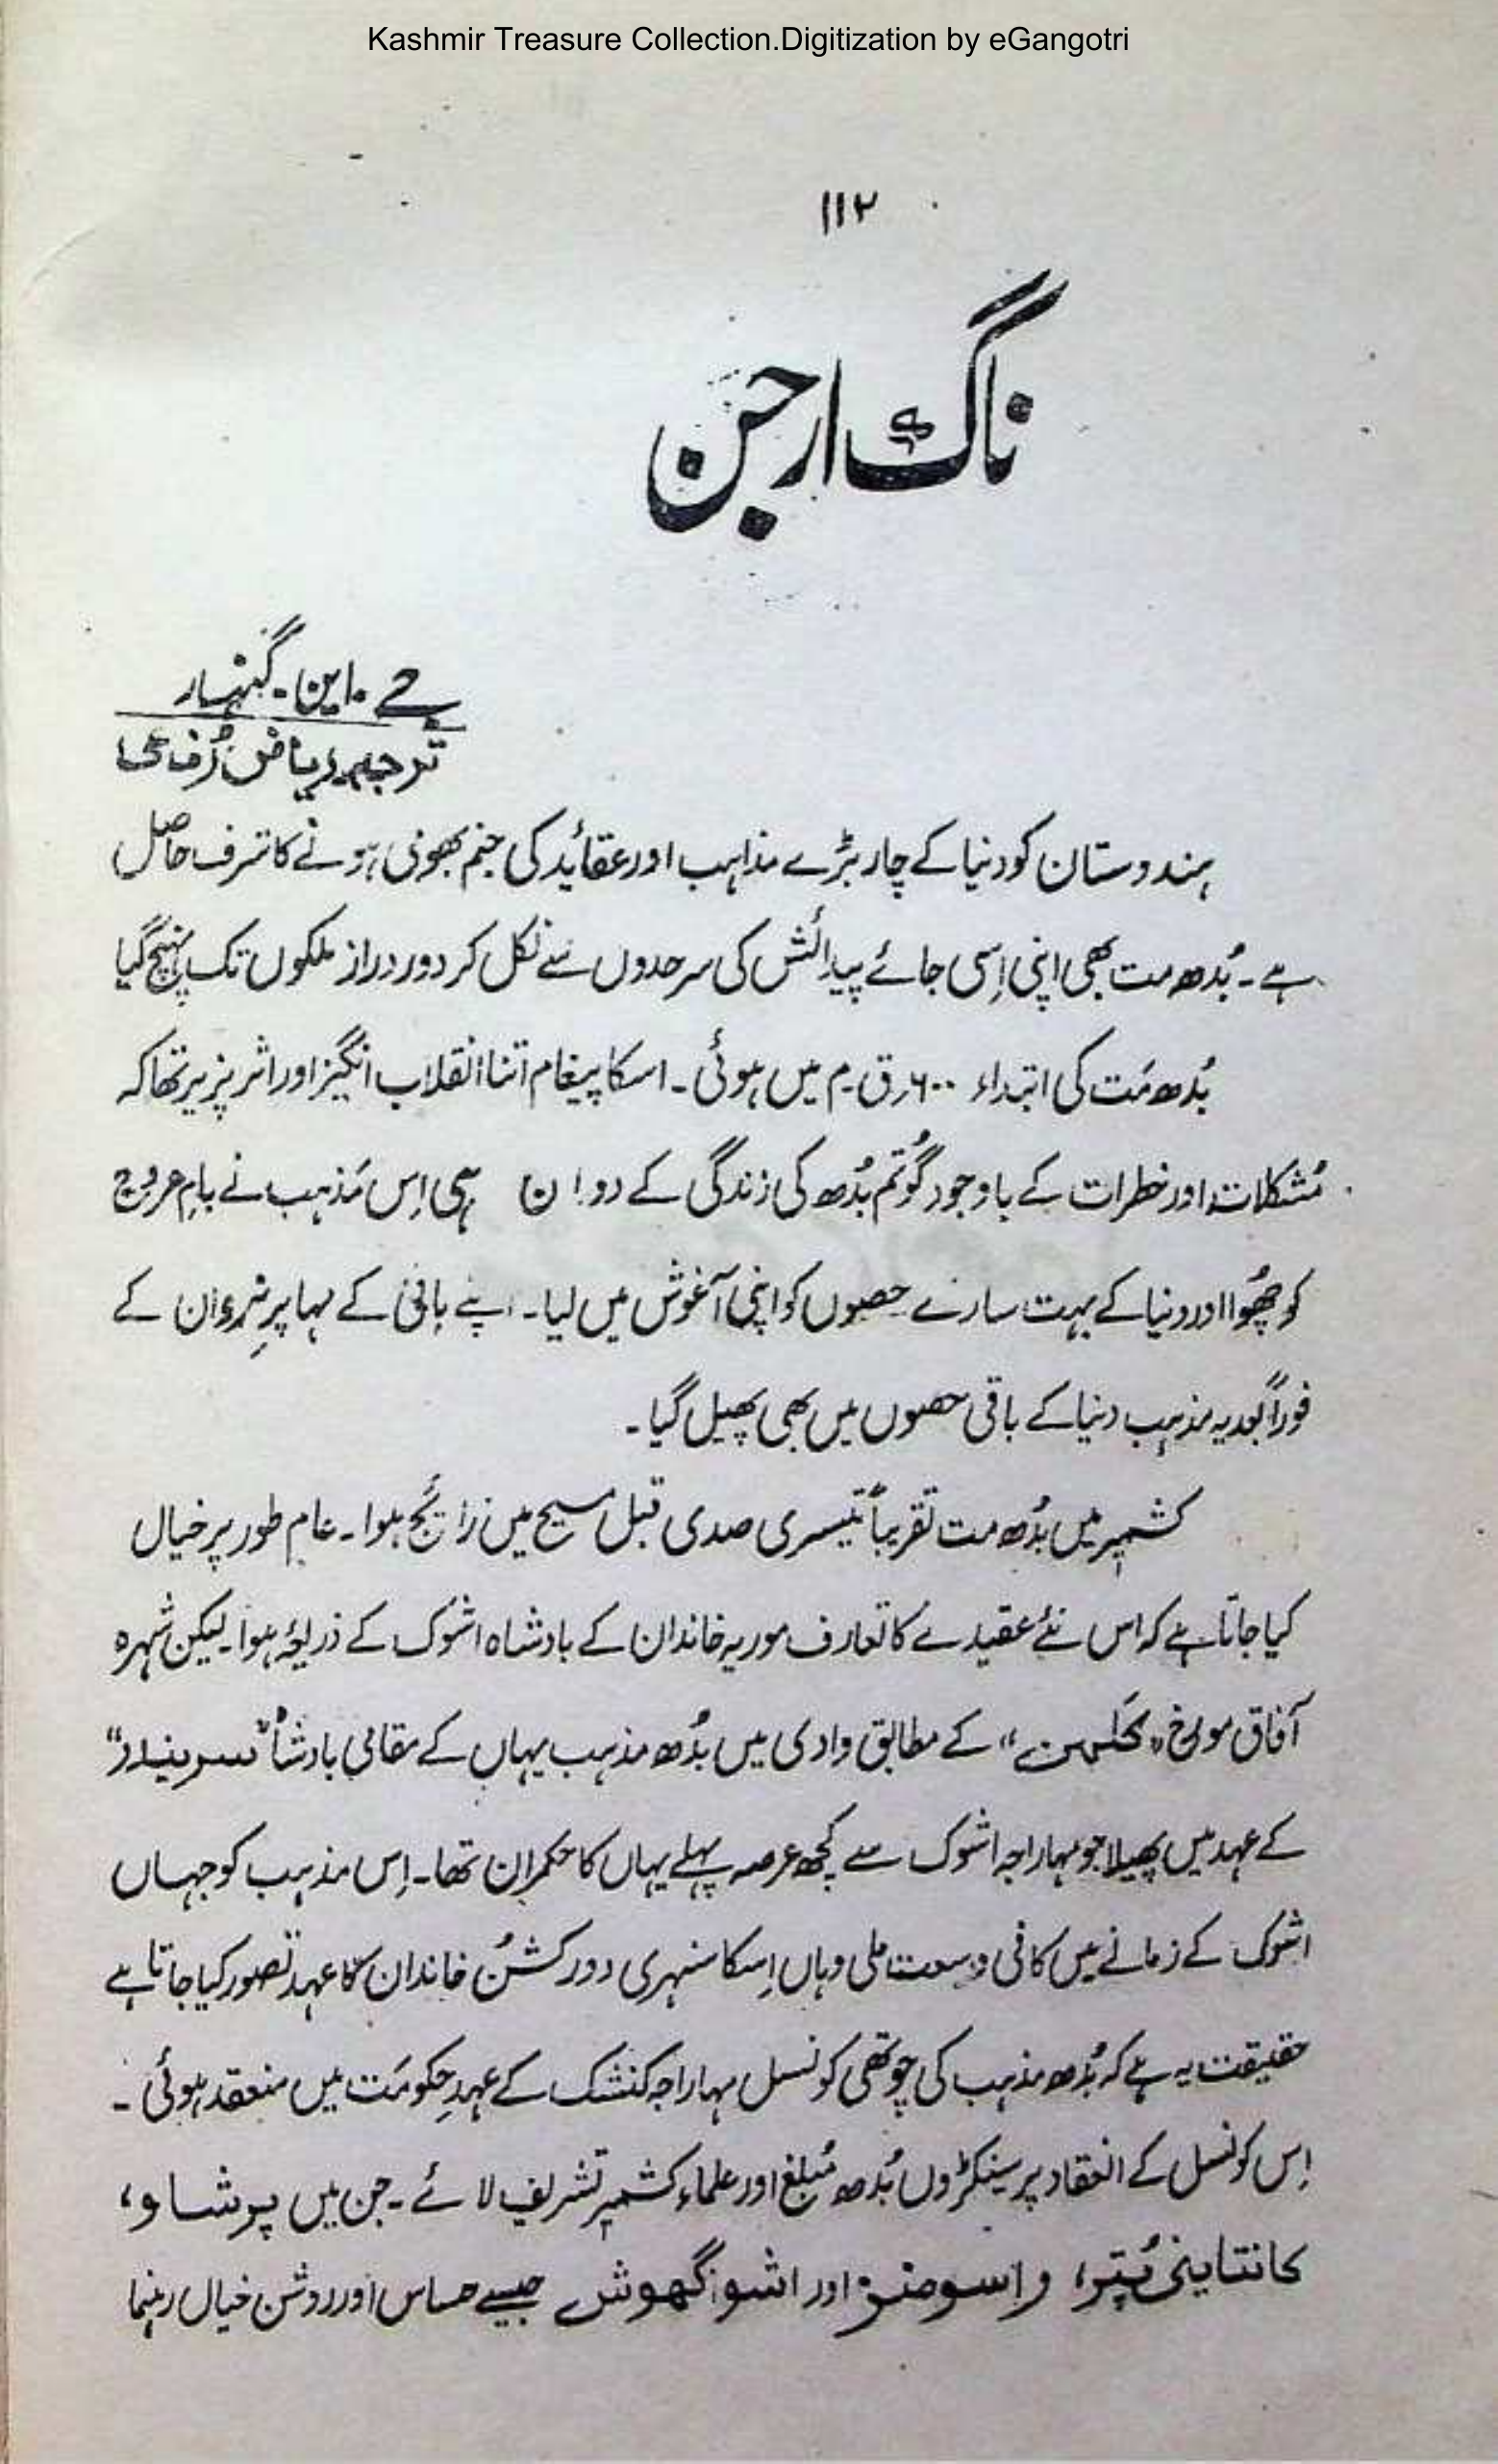 Kashmir Treasure Collection.Digitization by eGangotri
۱۱۲
ناگ ارجن
جے ۔ این ۔ گنہار
ترجمہ ریاض رُفاعی
ہندوستان کو دنیا کے چار بڑے مذاہب اور عقائد کی جنم بھومی ہونے کا شرف حاصل
ہے ۔ بُدھ مت بھی اپنی اِسی جائے پیدائش کی سرحدوں سے نکل کر دور دراز ملکوں تک پہنچ گیا
بُدھ مَت کی ابتداء ۶۰۰ ق ۔ م میں ہوئی ۔ اسکا پیغام اتنا انقلاب انگیز اور اثر پزیر تھا کہ
مُشکلات اور خطرات کے باوجود گوتم بُدھ کی زندگی کے دوران ہی اِس مَذہب نے بامِ عروج
کو چُھوا اور دنیا کے بہت سارے حصوں کو اپنی آغوش میں لیا ۔ اپنے بانی کے مہاپرِنروان کے
فوراً بعد یہ مذہب دنیا کے باقی حصوں میں بھی پھیل گیا ۔
کشمیر میں بُدھ مت تقریباً تیسری صدی قبل مسیح میں رائج ہوا ۔ عام طور پر خیال
کیا جاتا ہے کہ اس نئے عقیدے کا تعارف موریہ خاندان کے بادشاہ اشوک کے ذریعہ ہوا ۔ لیکن شہرہ
آفاق مورخ "کلہن" کے مطابق وادی میں بُدھ مذہب یہاں کے مقامی بادشاہ "سریندر"
کے عہد میں پھیلا جو مہاراجہ اشوک سے کچھ عرصہ پہلے یہاں کا حکمران تھا ۔ اِس مذہب کو جہاں
اشوک کے زمانے میں کافی وسعت ملی وہاں اِسکا سنہری دور کشُن خاندان کا عہد تصور کیا جاتا ہے
حقیقت یہ ہے کہ بُدھ مذہب کی چوتھی کونسل مہاراجہ کنشک کے عہدِ حکومَت میں منعقد ہوئی ۔
اِس کونسل کے انعقاد پر سینکڑوں بُدھ مُبلغ اور علماء کشمیر تشریف لائے ۔ جن میں پرشاو،
کانتاینی پُتر، واسومتر اور اشوگھوش جیسے حساس اور روشن خیال رہنما